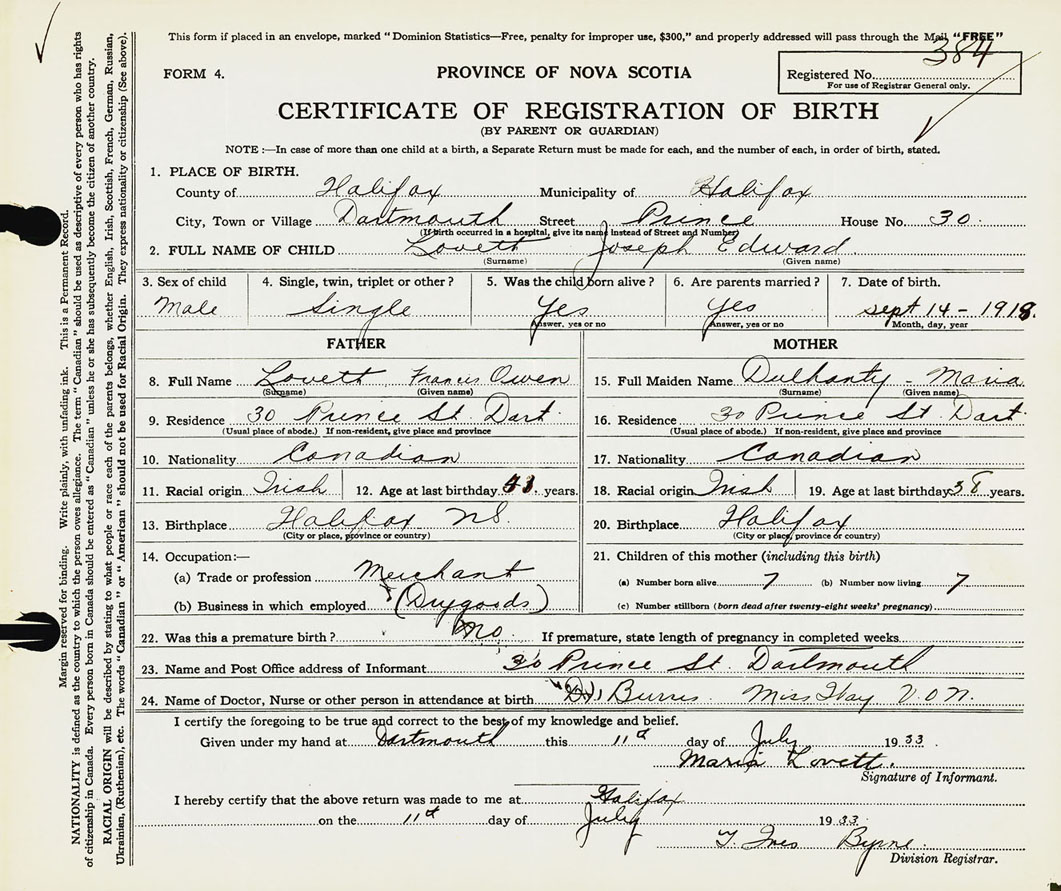 This form if placed in an envelope, marked "Dominion Statistics—Free, penalty for improper use, $300," and properly addressed will pass through the Mail "FREE"
384
FORM 4.
PROVINCE OF NOVA SCOTIA
Registered No.
For use of Registrar General only.
CERTIFICATE OF REGISTRATION OF BIRTH
(BY PARENT OR GUARDIAN)
NOTE :—In case of more than one child at a birth, a Separate Return must be made for each, and the number of each, in order of birth, stated.
1. PLACE OF BIRTH.
County of Halifax Municipality of Halifax
City, Town or Village Dartmouth Street Prince House No. 30.
(If birth occurred in a hospital, give its name instead of Street and Number)
2. FULL NAME OF CHILD Lovett Joseph Edward
(Surname) (Given name)
3. Sex of child 4. Single, twin, triplet or other? 5. Was the child born alive? 6. Are parents married? 7. Date of birth.
Male Single Yes Yes Sept 14 – 1918.
Answer, yes or no Answer, yes or no Month, day, year
FATHER MOTHER
8. Full Name Lovett, Francis Owen 15. Full Maiden Name Dulhanty - Maria
(Surname) (Given name) (Surname) (Given name)
9. Residence 30 Prince St. Dart. 16. Residence 30 Prince St Dart.
(Usual place of abode.) If non-resident, give place and province (Usual place of abode.) If non-resident, give place and province
10. Nationality Canadian 17. Nationality Canadian
11. Racial origin Irish 12. Age at last birthday 43. years. 18. Racial origin Irish 19. Age at last birthday 38 years.
13. Birthplace Halifax N.S. 20. Birthplace Halifax
(City or place, province or country) (City or place, province or country)
14. Occupation:— 21. Children of this mother (including this birth)
(a) Trade or profession Merchant (a) Number born alive 7 (b) Number now living 7
(b) Business in which employed (Drygoods) (c) Number stillborn (born dead after twenty-eight weeks' pregnancy)
22. Was this a premature birth? No. If premature, state length of pregnancy in completed weeks
23. Name and Post Office address of Informant 30 Prince St. Dartmouth
24. Name of Doctor, Nurse or other person in attendance at birth Dr. Burris Miss Hay V.O.N.
I certify the foregoing to be true and correct to the best of my knowledge and belief.
Given under my hand at Dartmouth this 11th day of July 1933.
Maria Lovett.
Signature of Informant.
I hereby certify that the above return was made to me at Halifax
on the 11th day of July 1933
Byrne.
Division Registrar.
Margin reserved for binding. Write plainly, with unfading ink. This is a Permanent Record.
NATIONALITY is defined as the country to which the person owes allegiance. The term "Canadian" should be used as descriptive of every person who has rights
of citizenship in Canada. Every person born in Canada should be entered as "Canadian" unless he or she has subsequently become the citizen of another country.
RACIAL ORIGIN will be described by stating to what people or race each of the parents belongs, whether English, Irish, Scottish, French, German, Russian,
Ukrainian, (Ruthenian), etc. The words "Canadian" or "American" should not be used for Racial Origin. They express nationality or citizenship (See above).